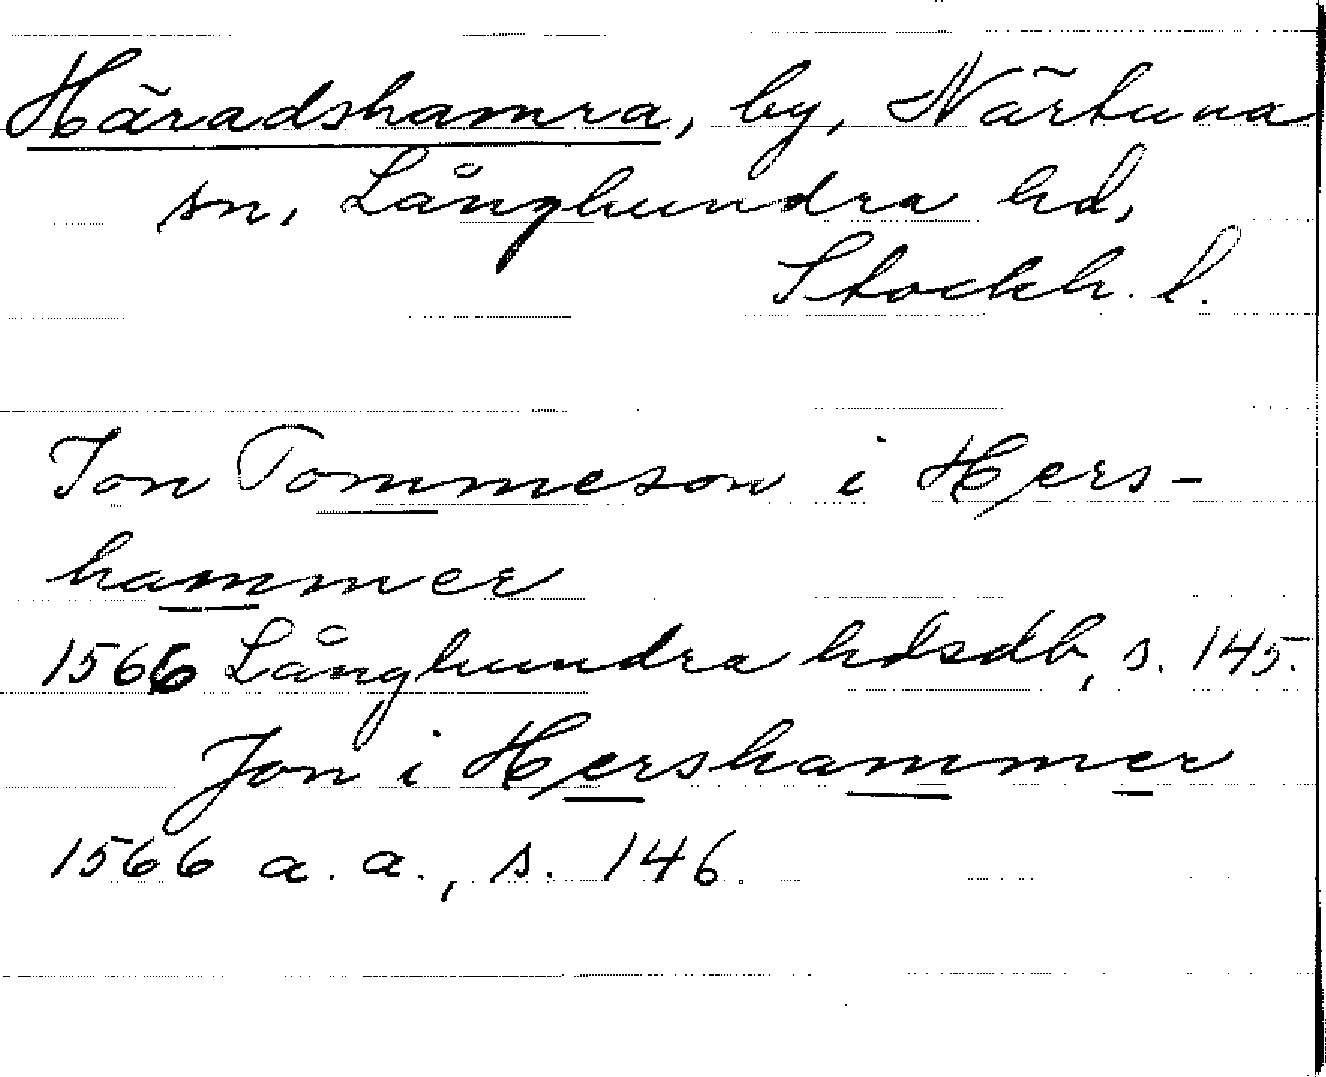 Häradshamra, by, Närtuna
sn, Långhundra hd,
Stockh. l.
Jon Tommeson i Hers-
hammer
1566 Långhundra hdsdb, s. 145.
Jon i Hershammer
1566 a. a., s. 146.